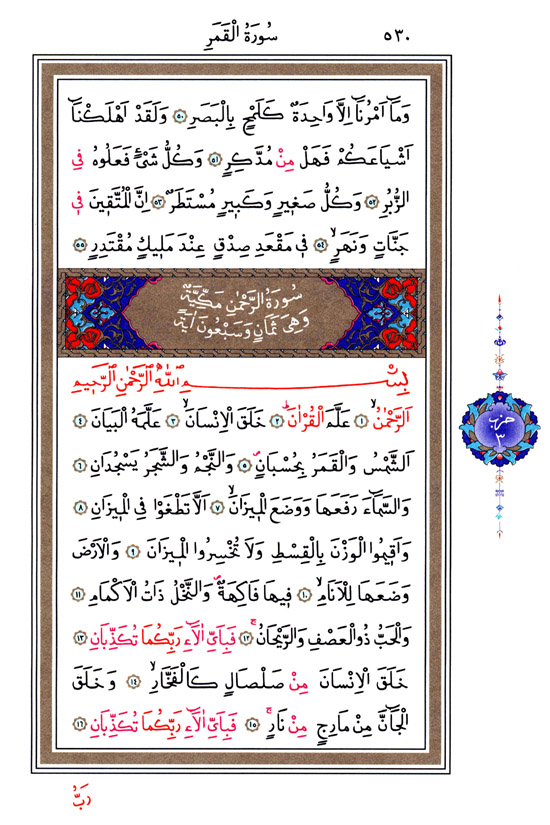 ٥٣٠
سُورَةُ الْقَمَرِ
وَمَٓا اَمْرُنَٓا اِلَّا وَاحِدَةٌ كَلَمْحٍ بِالْبَصَرِ ﴿٥٠﴾ وَلَقَدْ اَهْلَكْنَٓا
اَشْيَاعَكُمْ فَهَلْ مِنْ مُدَّكِرٍ ﴿٥١﴾ وَكُلُّ شَيْءٍ فَعَلُوهُ فِي
الزُّبُرِ ﴿٥٢﴾ وَكُلُّ صَغٖيرٍ وَكَبٖيرٍ مُسْتَطَرٌ ﴿٥٣﴾ اِنَّ الْمُتَّقٖينَ فٖي
جَنَّاتٍ وَنَهَرٍۙ ﴿٥٤﴾ فٖي مَقْعَدِ صِدْقٍ عِنْدَ مَلٖيكٍ مُقْتَدِرٍ ﴿٥٥﴾
سُورَةُ الرَّحْمٰنِ مَكِّيَّةٌ
وَهِيَ ثَمَانٍ وَسَبْعُونَ اٰيَةً
بِسْمِ اللّٰهِ الرَّحْمٰنِ الرَّحٖيمِ
اَلرَّحْمٰنُۙ ﴿١﴾ عَلَّمَ الْقُرْاٰنَۜ ﴿٢﴾ خَلَقَ الْاِنْسَانَۙ ﴿٣﴾ عَلَّمَهُ الْبَيَانَ ﴿٤﴾
اَلشَّمْسُ وَالْقَمَرُ بِحُسْبَانٍۖ ﴿٥﴾ وَالنَّجْمُ وَالشَّجَرُ يَسْجُدَانِ ﴿٦﴾
وَالسَّمَٓاءَ رَفَعَهَا وَوَضَعَ الْمٖيزَانَۙ ﴿٧﴾ اَلَّا تَطْغَوْا فِي الْمٖيزَانِ ﴿٨﴾
وَاَقٖيمُوا الْوَزْنَ بِالْقِسْطِ وَلَا تُخْسِرُوا الْمٖيزَانَ ﴿٩﴾ وَالْاَرْضَ
وَضَعَهَا لِلْاَنَامِۙ ﴿١٠﴾ فٖيهَا فَاكِهَةٌۖ وَالنَّخْلُ ذَاتُ الْاَكْمَامِ ﴿١١﴾
وَالْحَبُّ ذُو الْعَصْفِ وَالرَّيْحَانُۚ ﴿١٢﴾ فَبِاَيِّ اٰلَٓاءِ رَبِّكُمَا تُكَذِّبَانِ ﴿١٣﴾
خَلَقَ الْاِنْسَانَ مِنْ صَلْصَالٍ كَالْفَخَّارِۙ ﴿١٤﴾ وَخَلَقَ
الْجَٓانَّ مِنْ مَارِجٍ مِنْ نَارٍۚ ﴿١٥﴾ فَبِاَيِّ اٰلَٓاءِ رَبِّكُمَا تُكَذِّبَانِ ﴿١٦﴾
حزب
٣
رَبُّ